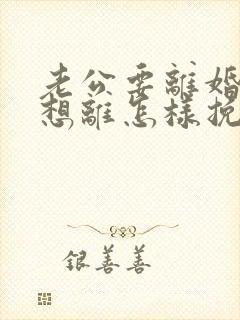 老公要離婚
想離怎樣挽
銀善善